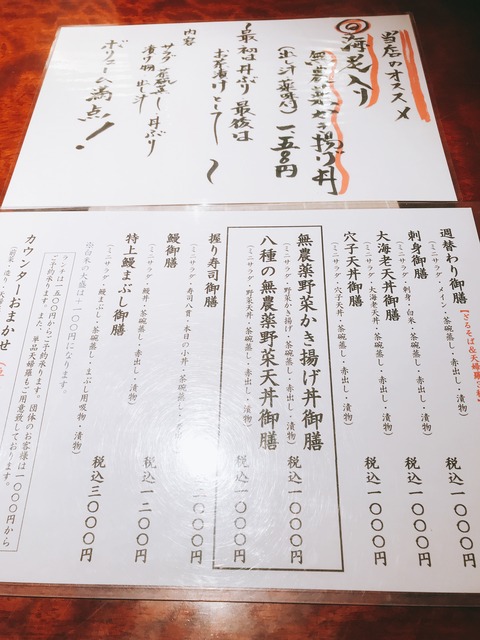 当店のオススメ
海老入り
無農薬かき揚げ丼
(出し汁薬味付) 一五〇〇円
〜最初は丼ぶり 最後は
お茶漬けとして〜
内容
サラダ 茶碗蒸し 丼ぶり
漬け物 出し汁
ボリューム満点!
週替わり御膳 税込一〇〇〇円
(ミニサラダ・メイン・茶碗蒸し・赤出し・漬物)
刺身御膳 税込一〇〇〇円
(ミニサラダ・刺身・白米・茶碗蒸し・赤出し・漬物)
大海老天丼御膳 税込一〇〇〇円
(ミニサラダ・大海老天丼・茶碗蒸し・赤出し・漬物)
穴子天丼御膳 税込一〇〇〇円
(ミニサラダ・穴子天丼・茶碗蒸し・赤出し・漬物)
無農薬野菜かき揚げ丼御膳 税込一〇〇〇円
(ミニサラダ・野菜かき揚げ・茶碗蒸し・赤出し・漬物)
八種の無農薬野菜天丼御膳 税込一〇〇〇円
(ミニサラダ・野菜天丼・茶碗蒸し・赤出し・漬物)
握り寿司御膳 〇〇〇円
(ミニサラダ・寿司八貫・本日の小丼・茶碗蒸し・赤出し・漬物)
鰻御膳 税込一二〇〇円
(ミニサラダ・鰻丼・茶碗蒸し・赤出し・漬物)
特上鰻まぶし御膳 税込三〇〇〇円
(ミニサラダ・鰻まぶし・茶碗蒸し・まぶし用吸物・漬物)
※白米の大盛は+一〇〇円になります。
ランチは一六〇〇円からご予約承ります。団体のお客様は一〇〇〇円から
ご予約承ります。また、単品天婦羅もご用意致しております。
カウンターおまかせ